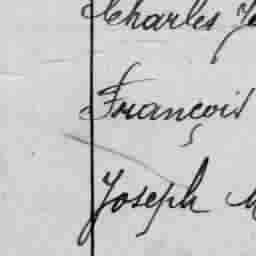 Charles
François
Joseph